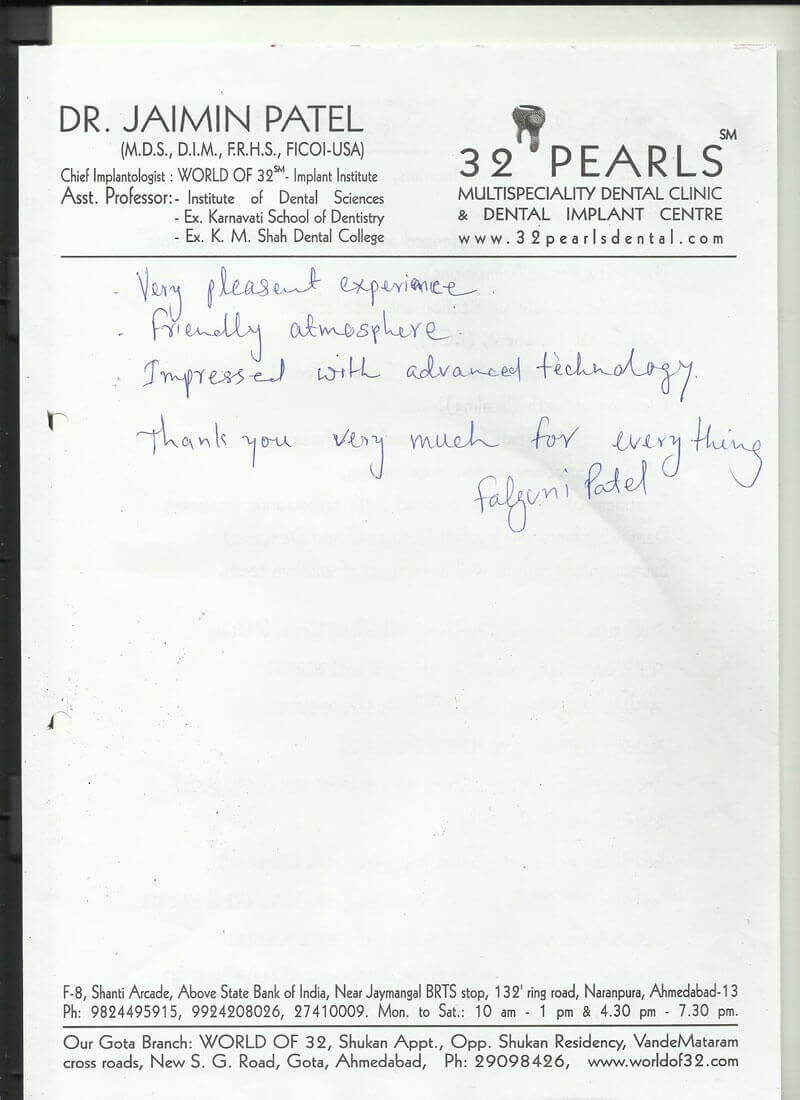 DR. JAIMIN PATEL
(M.D.S., D.I.M., F.R.H.S., FICOI-USA)
Chief Implantologist : WORLD OF 32℠- Implant Institute
Asst. Professor:- Institute of Dental Sciences
- Ex. Karnavati School of Dentistry
- Ex. K. M. Shah Dental College
32 PEARLS℠
MULTISPECIALITY DENTAL CLINIC
& DENTAL IMPLANT CENTRE
www.32pearlsdental.com
- Very pleasent experience.
- Friendly atmosphere.
- Impressed with advanced technology.
Thank you very much for everything
Falguni Patel
F-8, Shanti Arcade, Above State Bank of India, Near Jaymangal BRTS stop, 132' ring road, Naranpura, Ahmedabad-13
Ph: 9824495915, 9924208026, 27410009. Mon. to Sat.: 10 am - 1 pm & 4.30 pm - 7.30 pm.
Our Gota Branch: WORLD OF 32, Shukan Appt., Opp. Shukan Residency, VandeMataram
cross roads, New S. G. Road, Gota, Ahmedabad, Ph: 29098426, www.worldof32.com